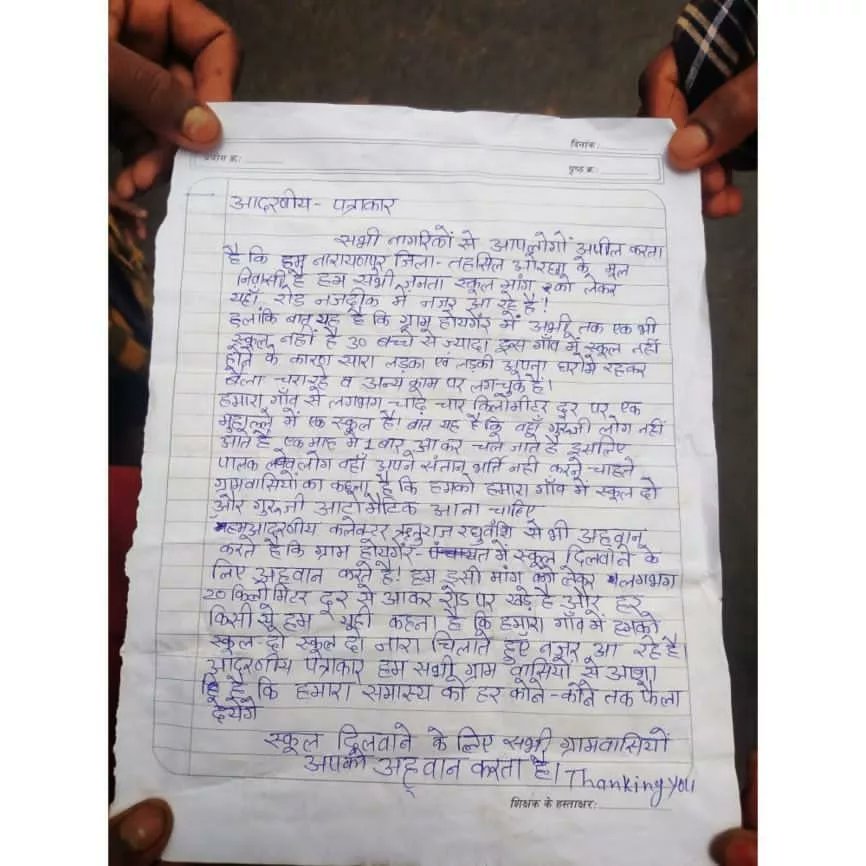 दिनांक:
प्रयोग क्र.:
पृष्ठ क्र.:
आदरणीय - पत्राकार
सभी नागरिकों से आपलोगों अपील करता
है कि हम नारायणपुर जिला - तहसिल ओरछा के मूल
निवासी है हम सभी जनता स्कूल मांग को लेकर
यहाँ रोड नजदीक में नजर आ रहे है!
हलांकि बात यह है कि ग्राम होयगेर में अभी तक एक भी
स्कूल नहीं है 30 बच्चे से ज्यादा इस गाँव में स्कूल नही
होने के कारण सारा लड़का एवं लड़की अपना घरोमे रहकर
बैला चरा रहे व अन्य काम पर लग चुके है।
हमारा गाँव से लगभग चादे चार किलोमीटर दुर पर एक
मुहाल्ले में एक स्कूल है। बात यह है कि वहाँ गुरुजी लोग नहीं
जाते है एक माह में 1 बार आ कर चले जाते है इसलिए
पालक लोग वहाँ अपने संतान भर्ति नही करने चाहते
ग्रामवासियों का कहना है कि हमको हमारा गाँव में स्कूल दो
और गुरुजी आटोमैटिक आना चाहिए
आदरणीय कलेक्टर ऋतुराज रघुवंशि से भी अहवान
करते है कि ग्राम होयगेर- में स्कूल दिलवाने के
लिए अहवान करते है! हम इसी मांग को लेकर लगभग
20 किलोमिटर दूर से आकर रोड पर खड़े है और हर
किसी से हम यही कहना है कि हमारा गाँव में हमको
स्कूल-दो स्कूल दो नारा चिलाते हुए नजर आ रहे है।
आदरणीय पत्राकार हम सभी ग्राम वासियों से आशा
है कि हमारा समास्य को हर कोने-कोने तक फैला
देयेंगे
स्कूल दिलवाने के लिए सभी ग्रामवासियों
आपको अहवान करता है। Thanking you
शिक्षक के हस्ताक्षर: